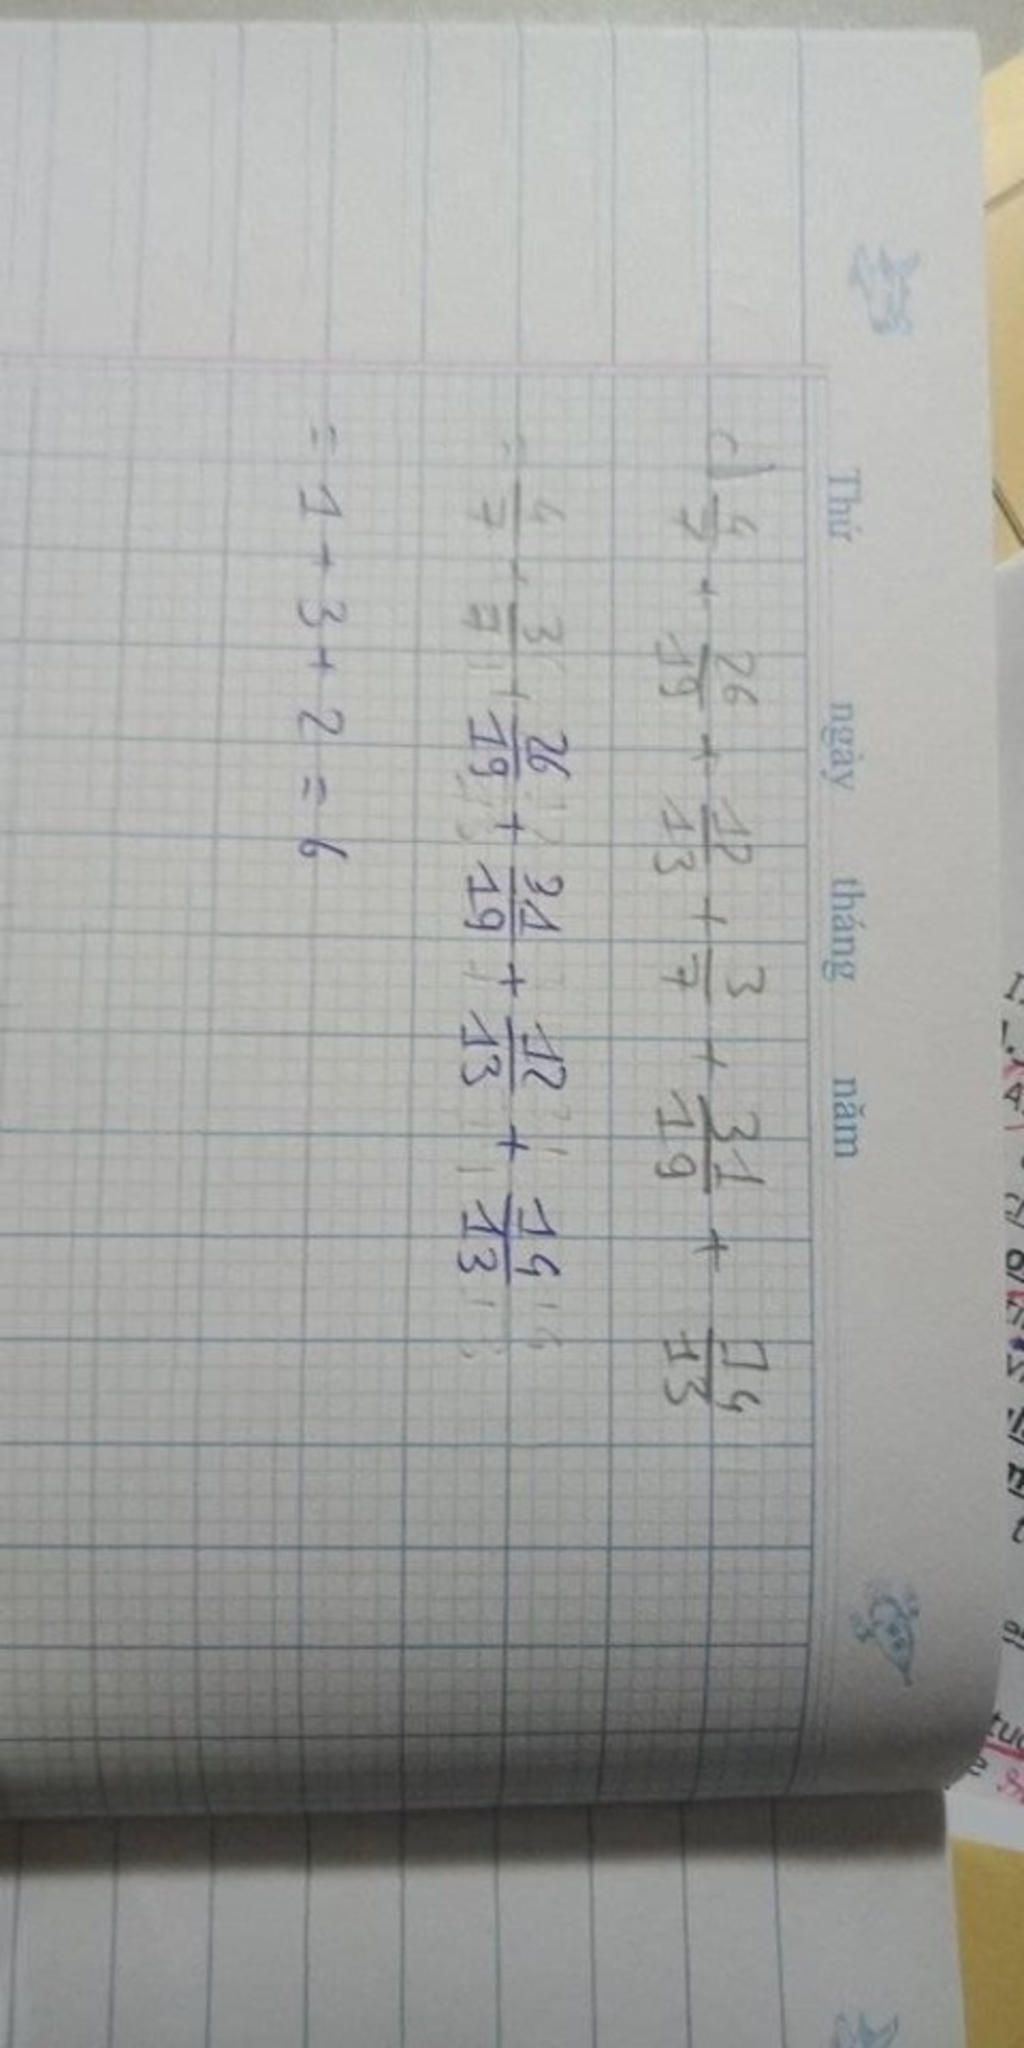 Thứ ngày tháng năm
c) 4/7 + 26/19 + 12/13 + 3/7 + 31/19 + 14/13
= 4/7 + 3/7 + 26/19 + 31/19 + 12/13 + 14/13
= 1 + 3 + 2 = 6